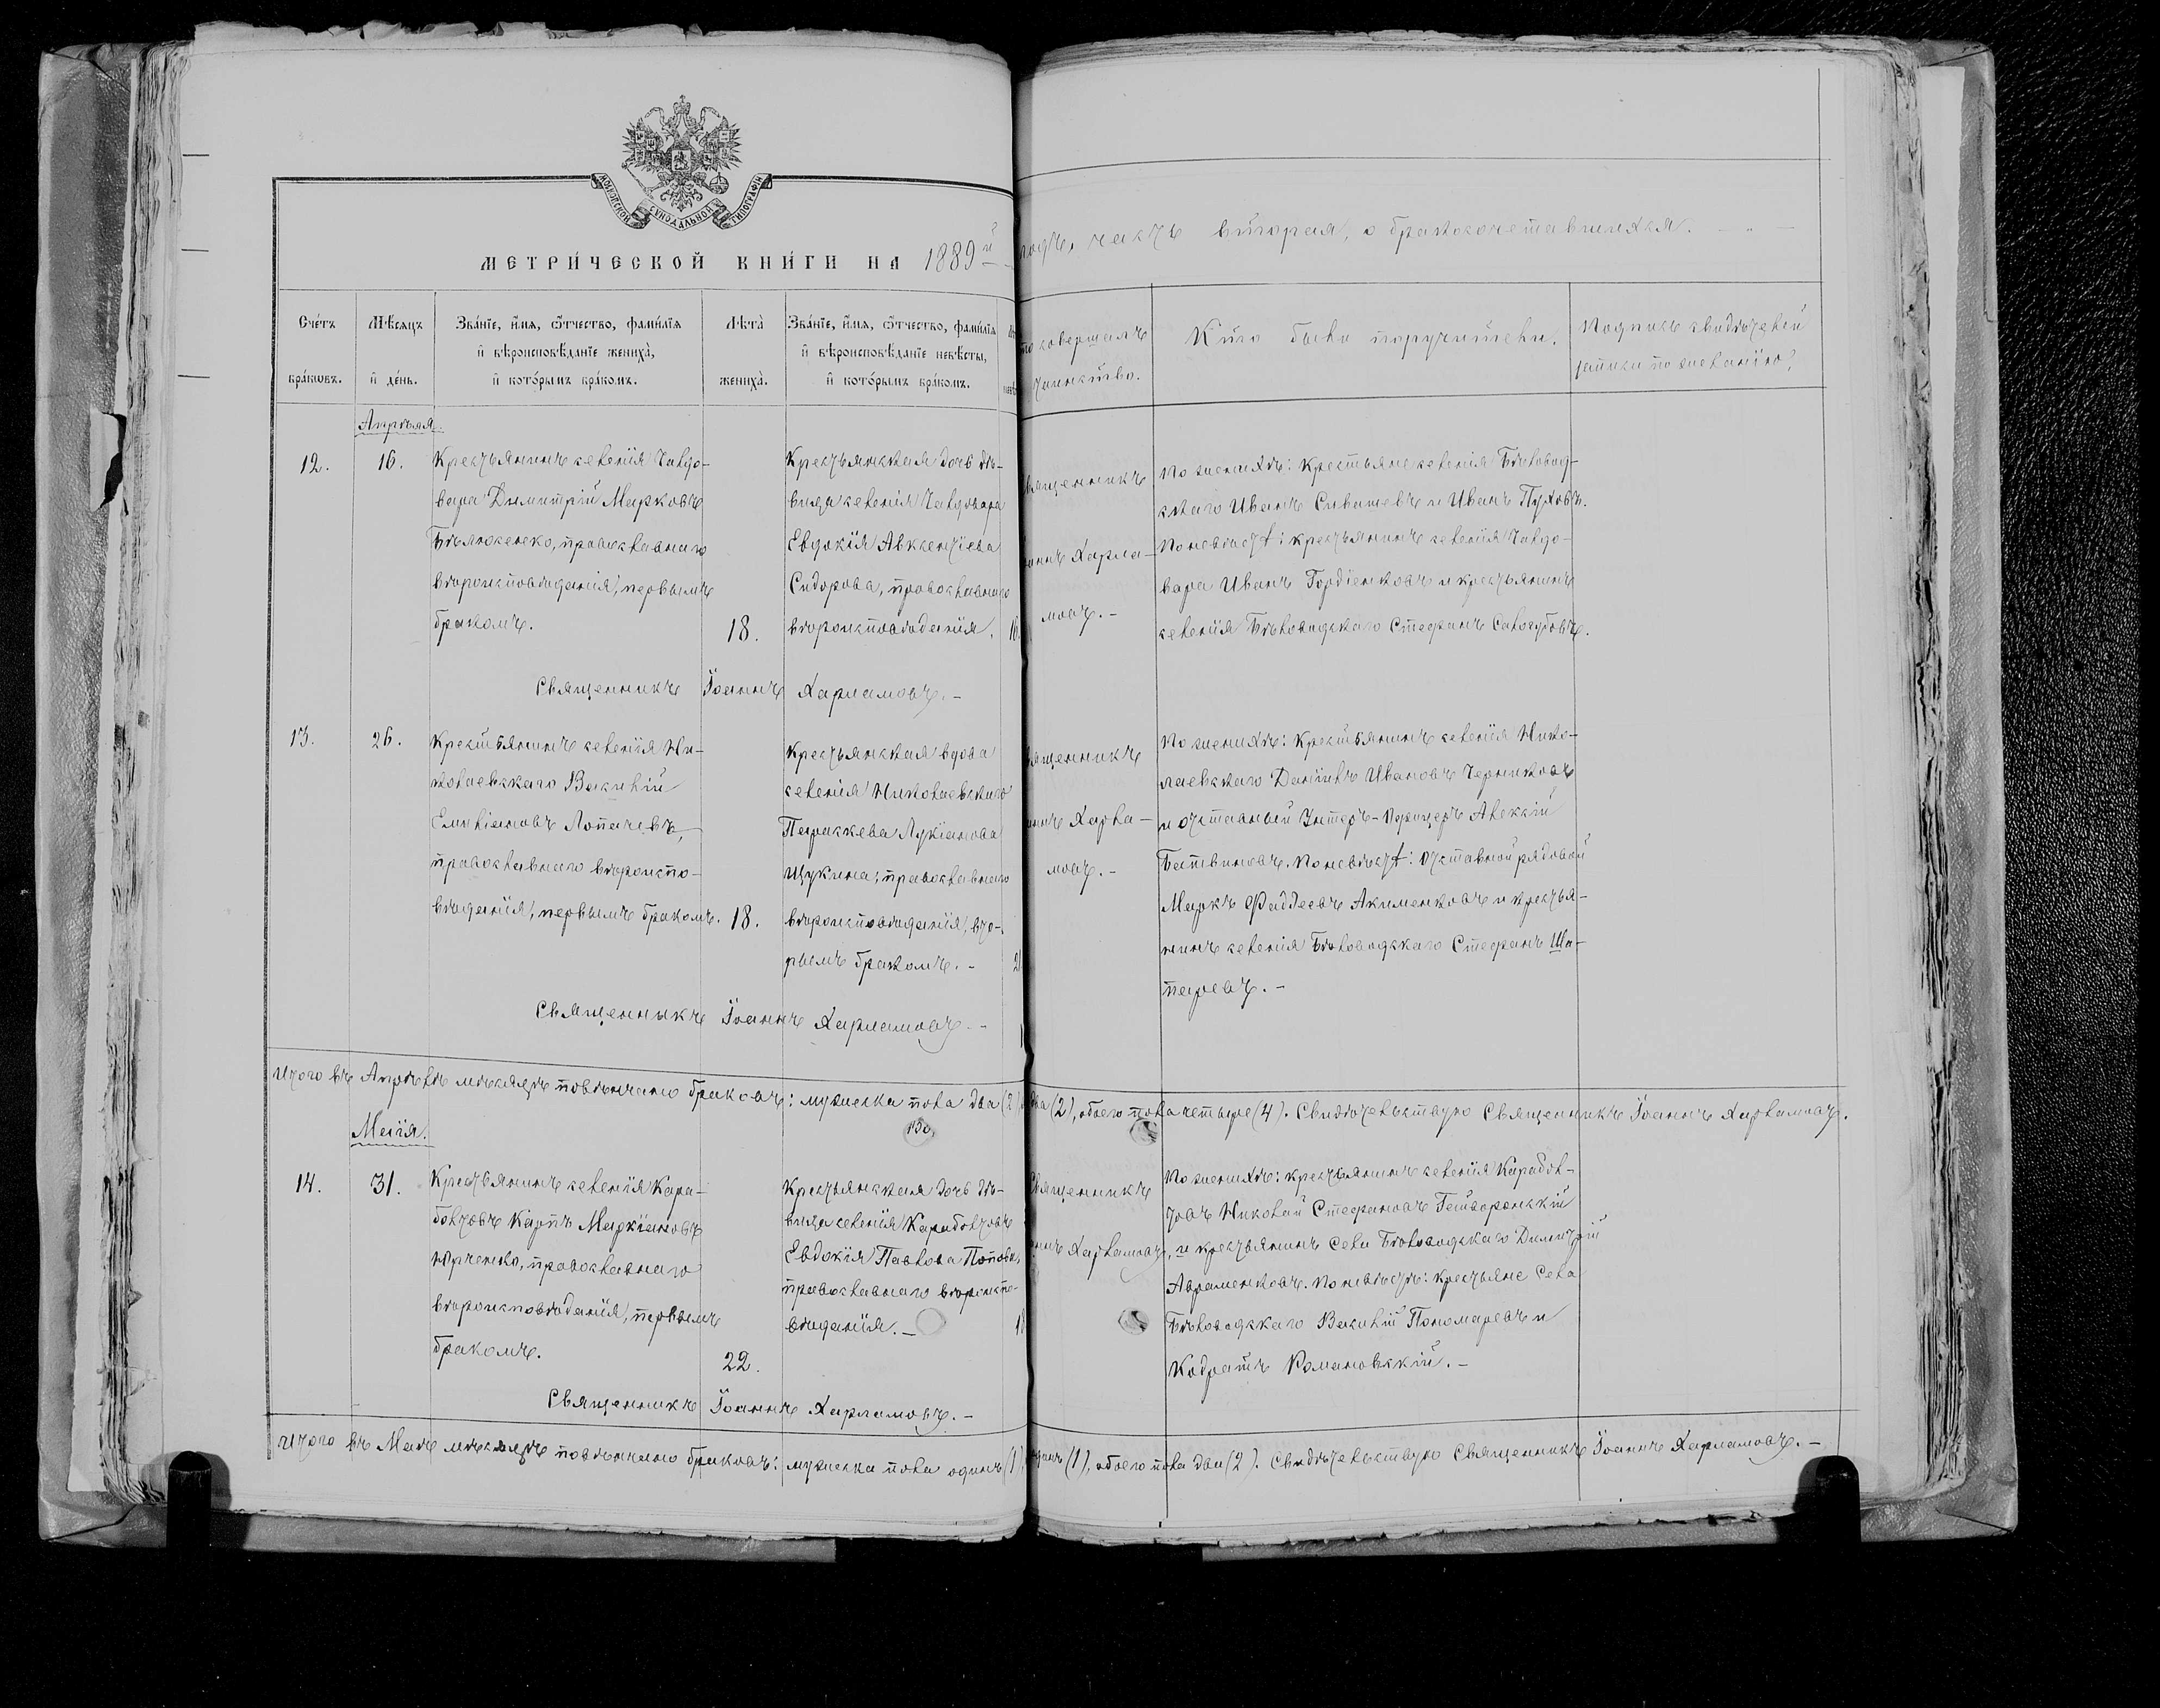 МОСКОВСКОЙ СѴНОДАЛЬНОЙ ТИПОГРАФІИ
МЕТРИ́ЧЕСКОЙ КНИ́ГИ НА 1889й
годъ, часть вторая, о бракосочетавшихся.
Счетъ браковъ.
Мѣсяцъ и день.
Званіе, имя, отчество, фамилія
и вѣроисповѣданіе жениха,
и которымъ бракомъ.
Лѣта жениха.
Званіе, имя, отчество, фамилія
и вѣроисповѣданіе невѣсты,
и которымъ бракомъ.
совершалъ
таинство.
Кто были поручители.
Подпись свидѣтелей
записи по желанію.
Апрѣля.
12.
16.
Крестьянинъ селенія Чавдо-
вара Димитрій Марковъ
Бѣляженко, православнаго
вѣроисповѣданія, первымъ
бракомъ.
18.
Крестьянская дочь дѣ-
вица селенія Чавдовара
Евдокія Авксентіева
Сидорова, православнаго
вѣроисповѣданія.
Священникъ
Іоаннъ Харла-
мовъ.-
По женихѣ: крестьяне селенія Бѣловод-
скаго Иванъ Сивашевъ и Иванъ Пуховъ.
По невѣстѣ: крестьянинъ селенія Чавдо-
вара Иванъ Гордіенковъ и крестьянинъ
селенія Бѣловодскаго Стефанъ Сологубовъ.
Священникъ Іоаннъ Харламовъ.-
13.
26.
Крестьянинъ селенія Ни-
колаевскаго Василій
Емиліановъ Лопачевъ,
православнаго вѣроиспо-
вѣданія, первымъ бракомъ.
18.
Крестьянская вдова
селенія Николаевскаго
Параскева Лукіанова
Щукина, православнаго
вѣроисповѣданія, вто-
рымъ бракомъ.-
Священникъ
Іоаннъ Харла-
мовъ.-
По женихѣ: крестьянинъ селенія Нико-
лаевскаго Даніилъ Ивановъ Черниковъ
и отставный Унтеръ-Офицеръ Алексій
Батвиновъ. По невѣстѣ: отставной рядовой
Маркъ Фаддеевъ Акименковъ и крестья-
нинъ селенія Бѣловодскаго Стефанъ Ша-
паревъ.-
Священникъ Іоаннъ Харламовъ.-
Итого въ Апрѣлѣ мѣсяцѣ повѣнчано браковъ: мужеска пола два (2), два (2), обоего пола четыре (4). Свидѣтельствую Священникъ Іоаннъ Харламовъ.
Маія.
14.
31.
Крестьянинъ селенія Кара-
болтовъ Карпъ Маркіановъ
Юрченко, православнаго
вѣроисповѣданія, первымъ
бракомъ.
22.
Крестьянская дочь дѣ-
вица селенія Караболтовъ
Евдокія Павлова Попова,
православнаго вѣроиспо-
вѣданія.-
Священникъ
Іоаннъ Харламовъ.
По женихѣ: крестьянинъ селенія Карабол-
товъ Николай Стефановъ Гайворонскій
и крестьянинъ Села Бѣловодскаго Димитрій
Авраменковъ. По невѣстѣ: крестьяне Села
Бѣловодскаго Василій Пономаревъ и
Кодратъ Романовскій.-
Священникъ Іоаннъ Харламовъ.-
Итого въ Маѣ мѣсяцѣ повѣнчано браковъ: мужеска пола одинъ (1), одинъ (1), обоего пола два (2). Свидѣтельствую Священникъ Іоаннъ Харламовъ.-